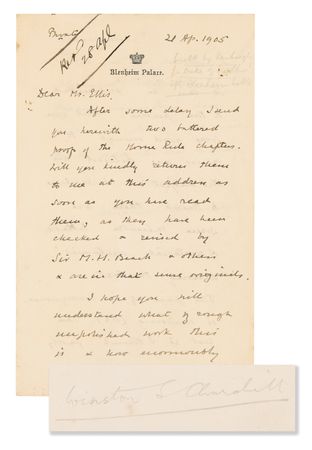 Private
Ret 28 Apl
21 Ap. 1905
Blenheim Palace.
Dear Mr. Ellis,
After some delay I send
you herewith two buttered
proof of the Home Rule chapters.
Will you kindly return them
to me at this address as
soon as you have read
them, as they have been
checked & revised by
Sir M. H. Beach & others
& are in that sense originals.
I hope you will
understand what of rough
unpolished work this
is & how enormously
Winston S. Churchill